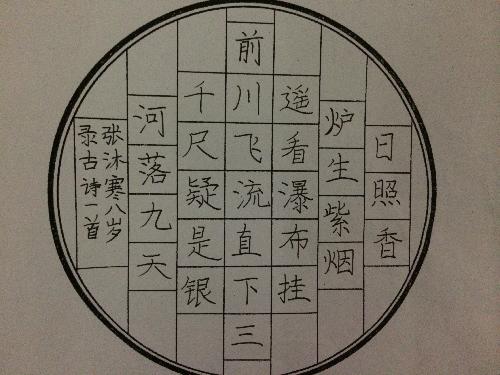 日照香
炉生紫烟
遥看瀑布挂
前川飞流直下三
千尺疑是银
河落九天
张沐寒八岁
录古诗一首